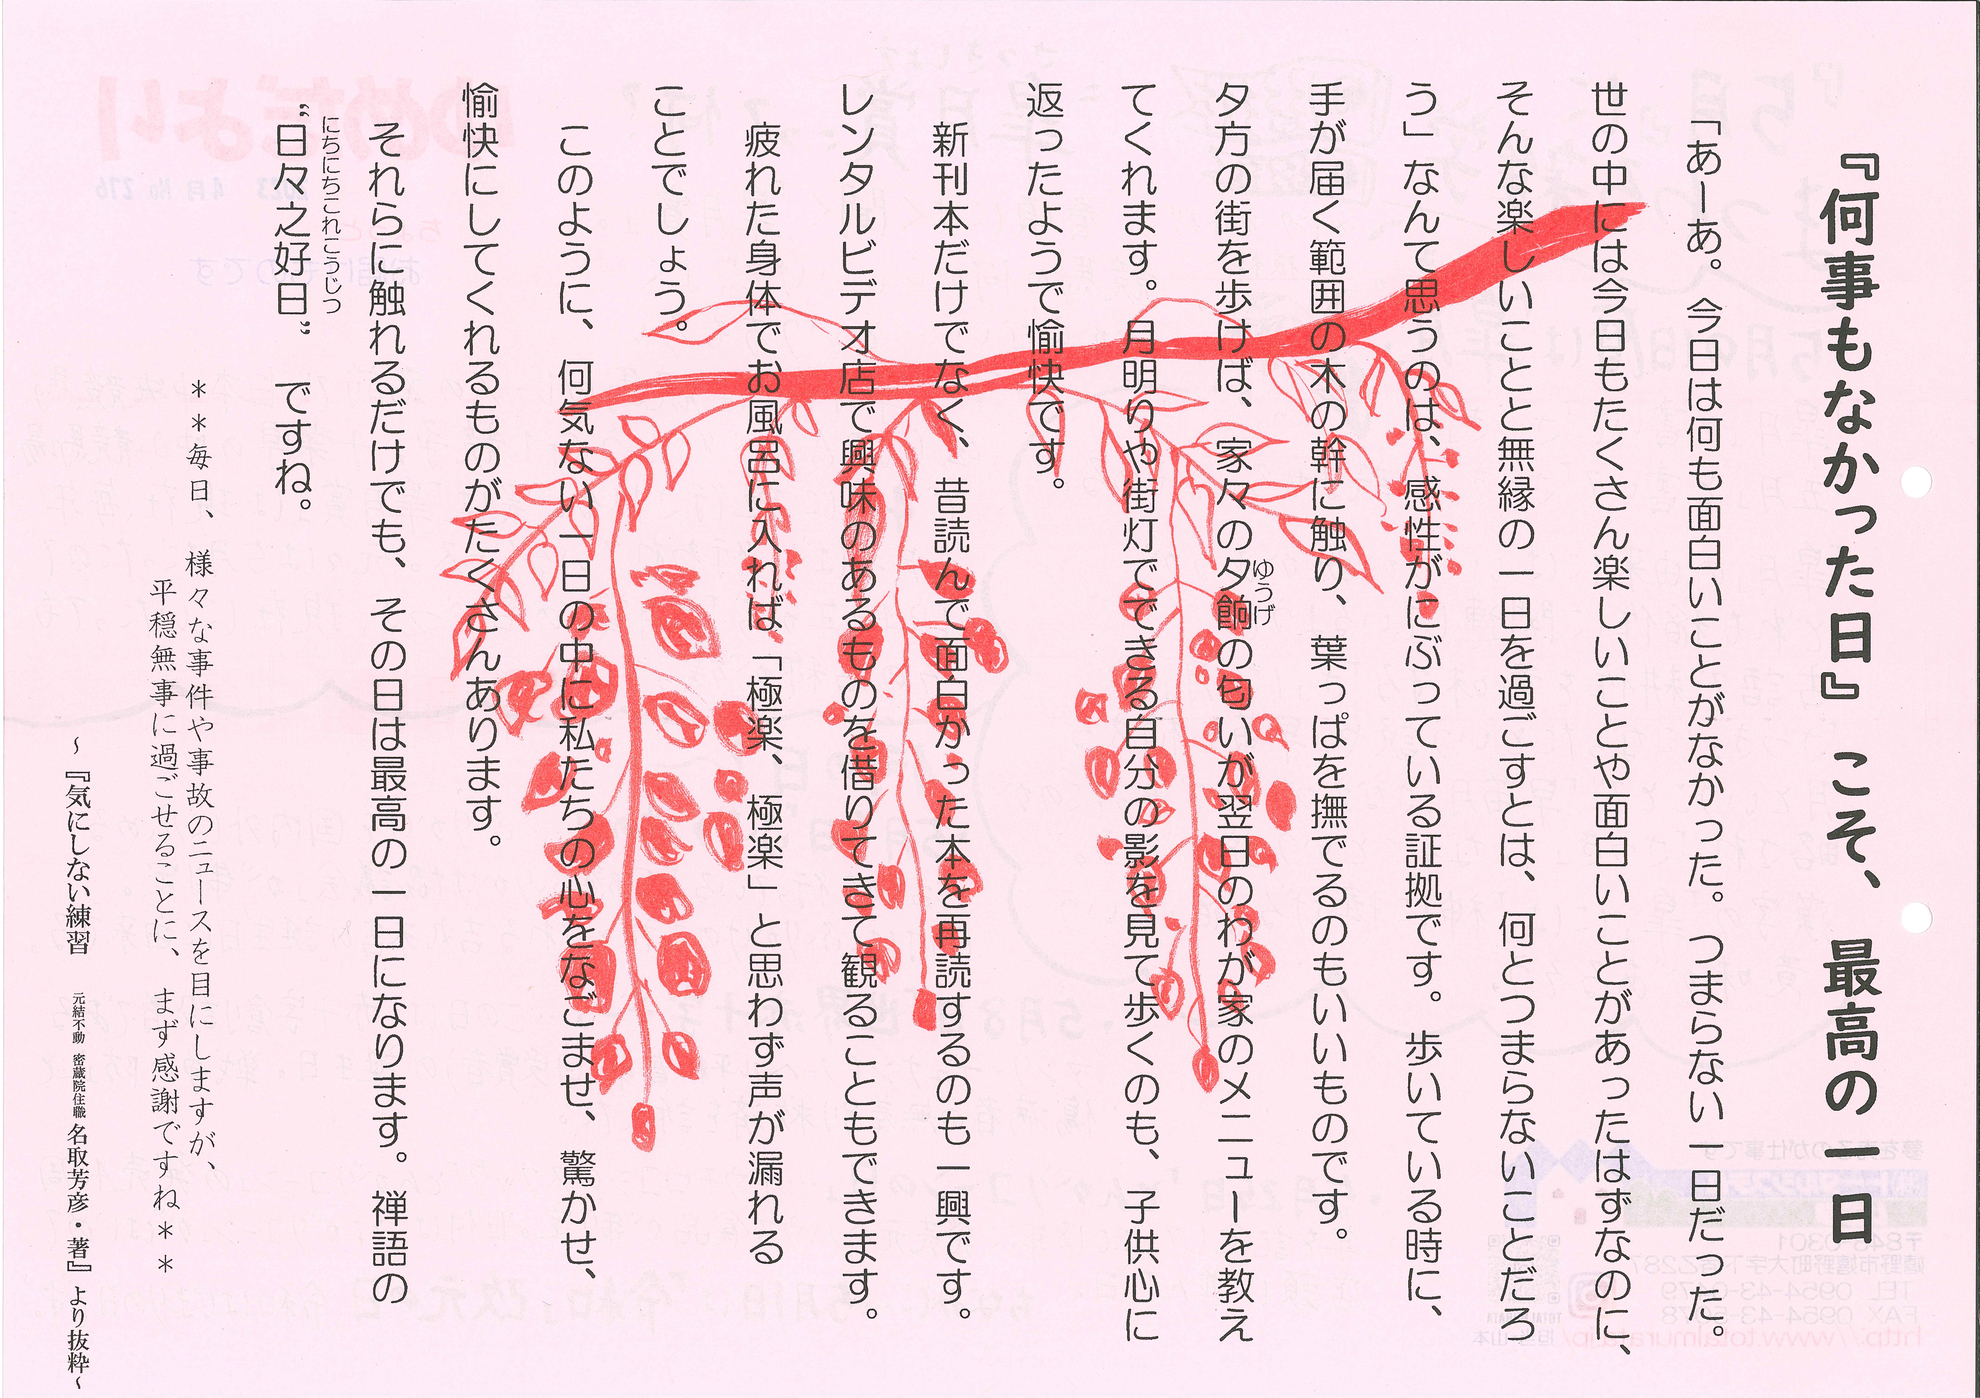 『何事もなかった日』こそ、最高の一日
「あーあ。今日は何も面白いことがなかった。つまらない一日だった。
世の中には今日もたくさん楽しいことや面白いことがあったはずなのに、
そんな楽しいことと無縁の一日を過ごすとは、何とつまらないことだろ
う」なんて思うのは、感性がにぶっている証拠です。歩いている時に、
手が届く範囲の木の幹に触り、葉っぱを撫でるのもいいものです。
夕方の街を歩けば、家々の夕餉の匂いが翌日のわが家のメニューを教え
ゆうげ
てくれます。月明りや街灯でできる自分の影を見て歩くのも、子供心に
返ったようで愉快です。
新刊本だけでなく、昔読んで面白かった本を再読するのも一興です。
レンタルビデオ店で興味のあるものを借りてきて観ることもできます。
疲れた身体でお風呂に入れば「極楽、極楽」と思わず声が漏れる
ことでしょう。
このように、何気ない一日の中に私たちの心をなごませ、驚かせ、
愉快にしてくれるものがたくさんあります。
それらに触れるだけでも、その日は最高の一日になります。禅語の
にちにちこれこうじつ
“日々之好日” ですね。
＊＊毎日、様々な事件や事故のニュースを目にしますが、
平穏無事に過ごせることに、まず感謝ですね＊＊
～『気にしない練習 元結不動 密蔵院住職 名取芳彦・著』より抜粋～